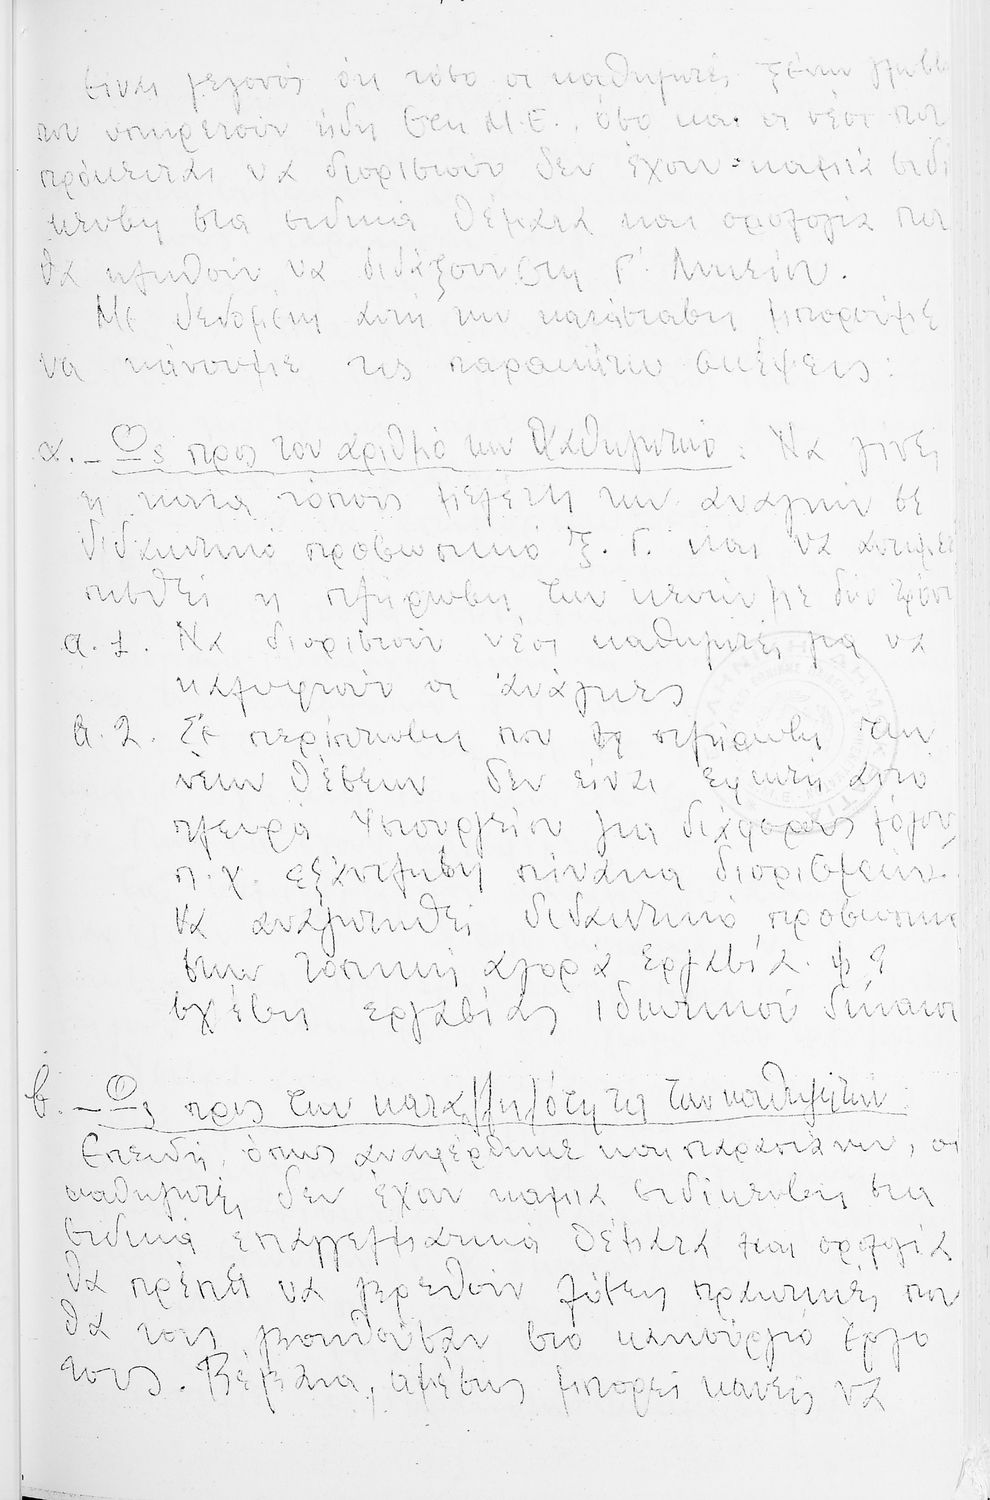 Είναι γεγονός ότι τόσο οι καθηγητές ξένων γλωσσ
που υπηρετούν ήδη στη Μ.Ε., όσο και οι νέοι που
πρόκειται να διοριστούν δεν έχουν καμμιά ειδί
κευση στα ειδικά θέματα και ορολογία που
θα κληθούν να διδάξουν στη Γ' Λυκείου.
Με δεδομένη αυτή την κατάσταση μπορούμε
να κάνουμε τις παρακάτω σκέψεις:
α. - Ως προς τον αριθμό των Καθηγητών: Να γίνει
η κατά τόπους μελέτη των αναγκών σε
διδακτικό προσωπικό Ξ. Γ. και να αντιμε
πισθεί η πλήρωση των κενών με δύο τρόπ
α.1. Να διοριστούν νέοι καθηγητές για να
καλυφτούν οι ανάγκες
α.2. Σε περίπτωση που η πλήρωση των
νέων θέσεων δεν είναι εφικτή από
πλευρά Υπουργείου για διάφορους λόγους
π.χ. εξάντληση πίνακα διορισμών.
Να αναζητηθεί διδακτικό προσωπικό
στην τοπική αγορά εργασία. με
σχέσης εργασίας ιδιωτικού δίκαιο
β. - Ως προς την καταλληλότητα των καθηγητών
Επειδή, όπως αναφέρθηκε και παραπάνω, οι
καθηγητές δεν έχουν καμμιά ειδίκευση στα
ειδικά επαγγελματικά θέματα και ορολογία
θα πρέπει να βρεθούν λύσεις πρακτικές που
θα τους βοηθούσαν στο καινούργιο έργο
τους. Βέβαια, αμέσως μπορεί κανείς να